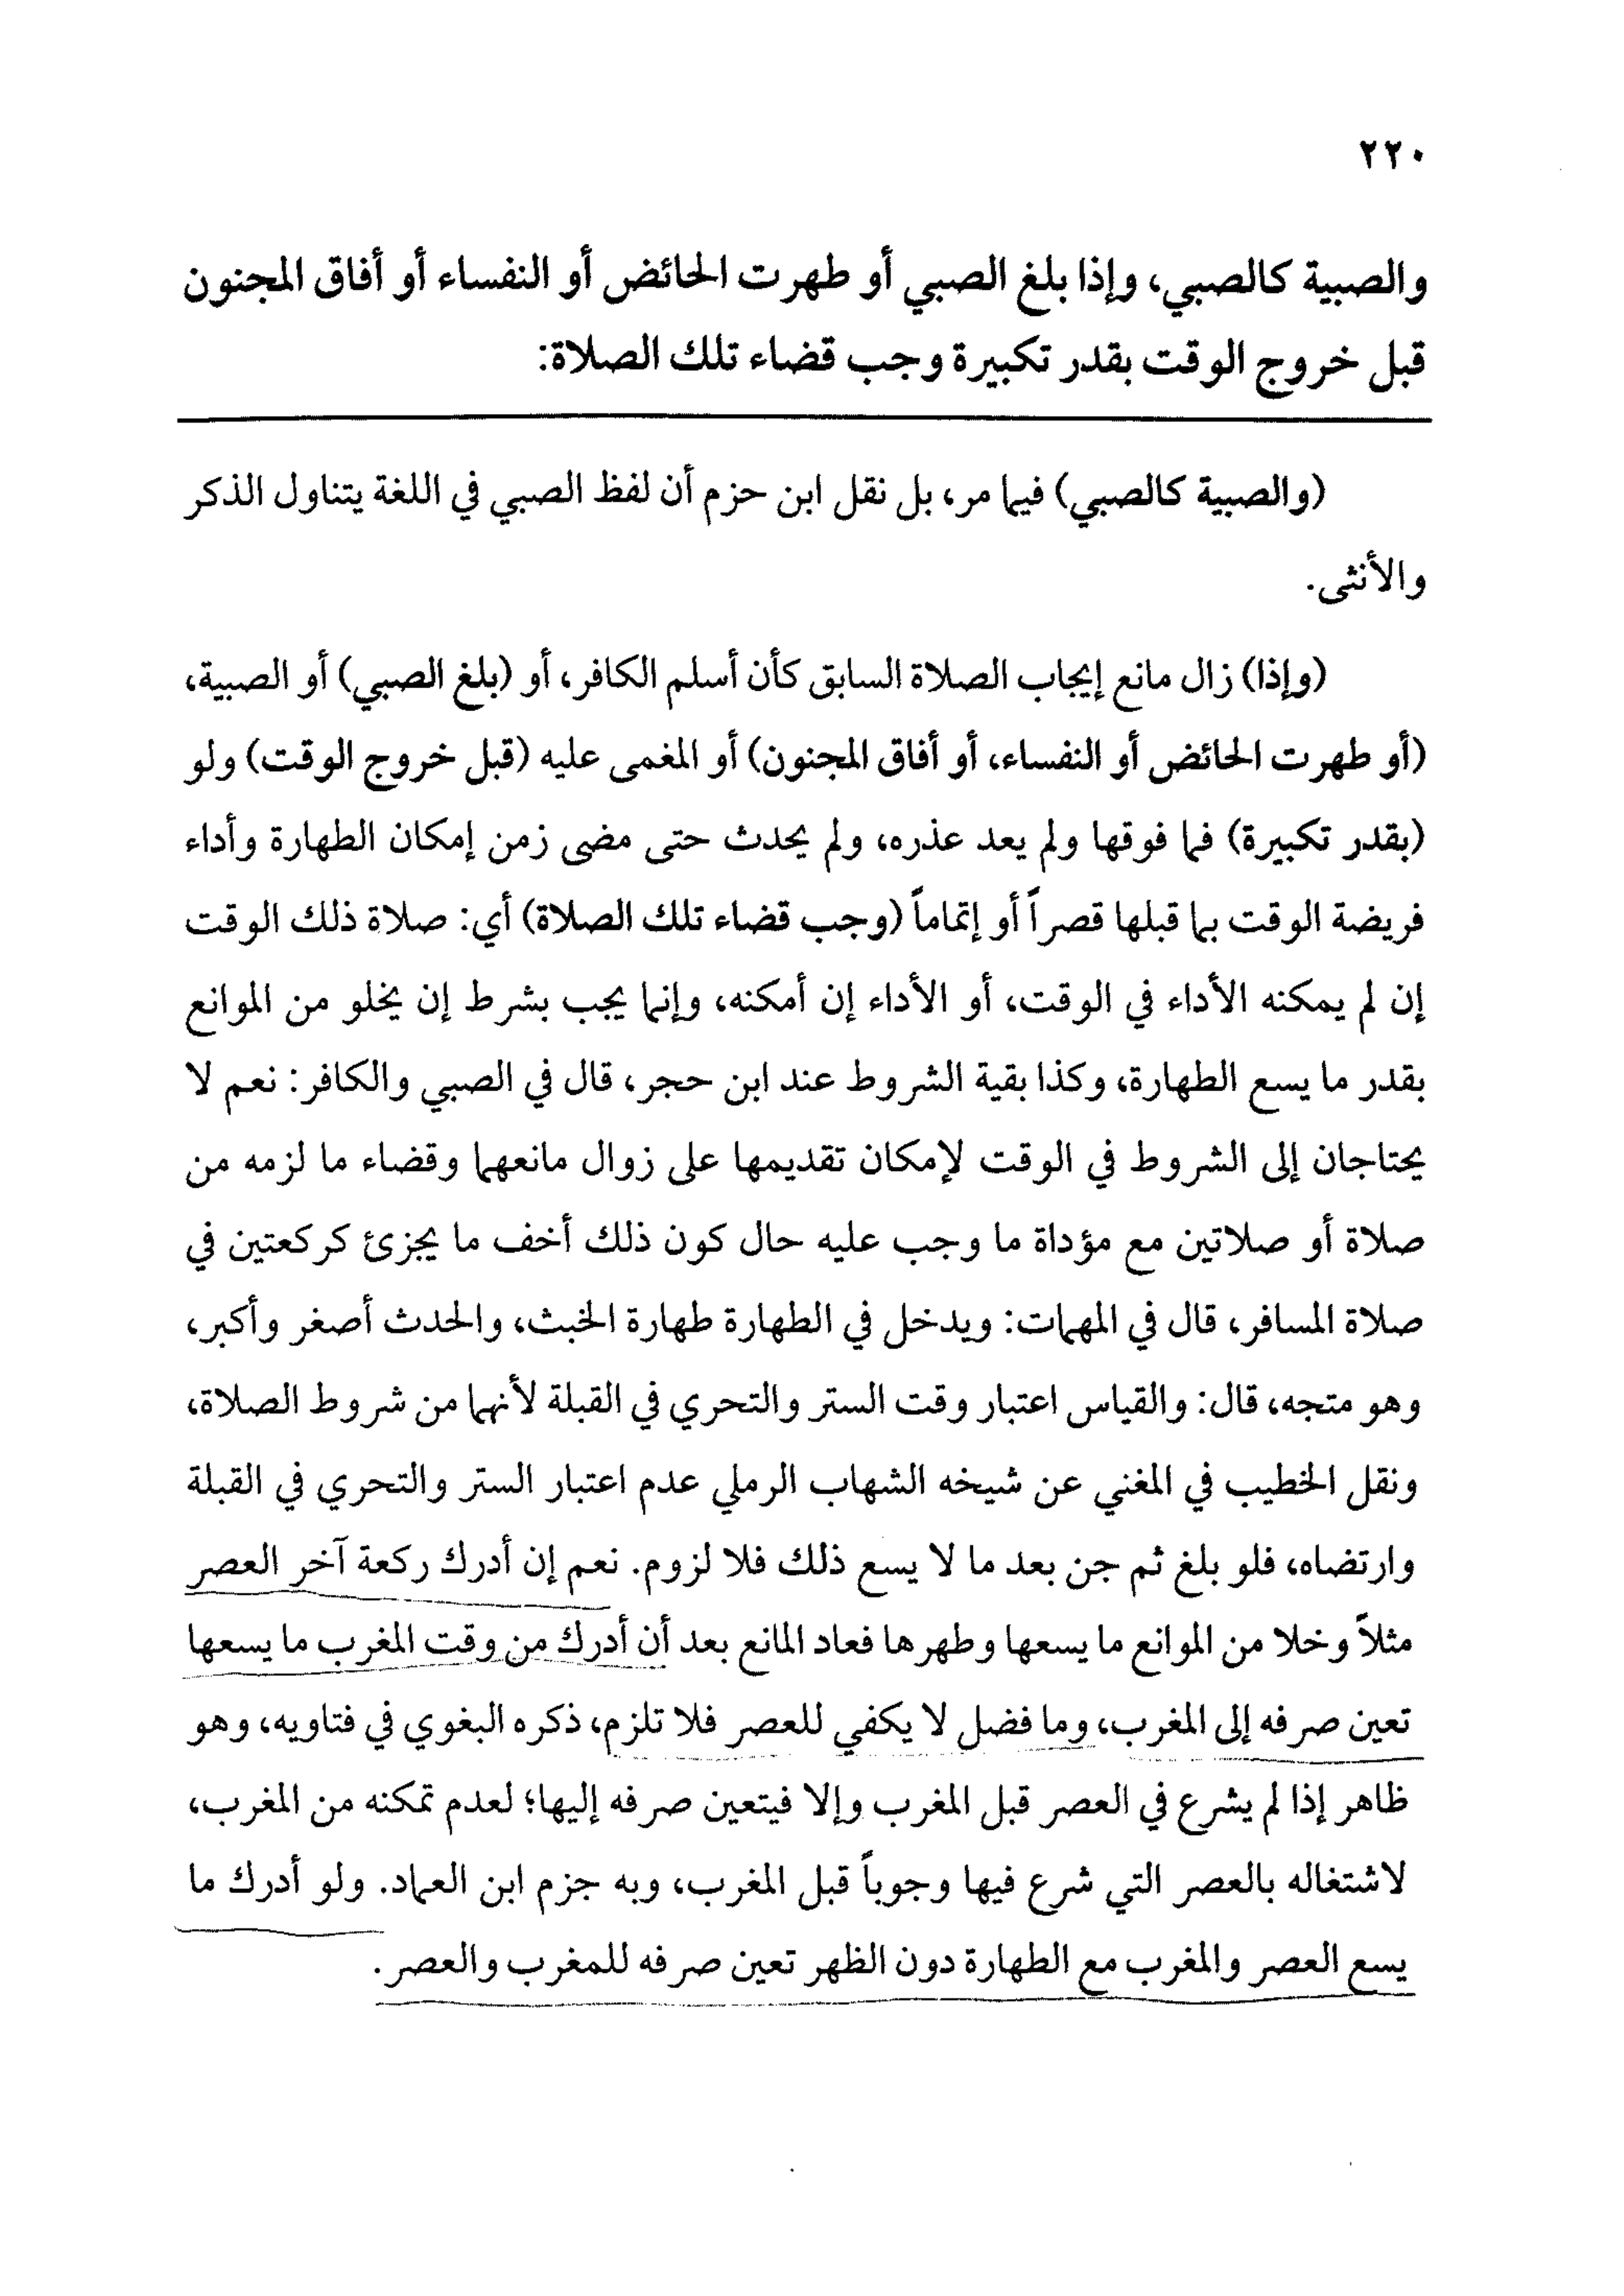 ٢٢٠
والصبية كالصبي، وإذا بلغ الصبي أو طهرت الحائض أو النفساء أو أفاق المجنون
قبل خروج الوقت بقدر تكبيرة وجب قضاء تلك الصلاة:
(والصبية كالصبي) فيما مر، بل نقل ابن حزم أن لفظ الصبي في اللغة يتناول الذكر
والأنثى.
(وإذا) زال مانع إيجاب الصلاة السابق كأن أسلم الكافر، أو (بلغ الصبي) أو الصبية،
(أو طهرت الحائض أو النفساء، أو أفاق المجنون) أو المغمى عليه (قبل خروج الوقت) ولو
(بقدر تكبيرة) فما فوقها ولم يعد عذره، ولم يحدث حتى مضى زمن إمكان الطهارة وأداء
فريضة الوقت بما قبلها قصراً أو إتماماً (وجب قضاء تلك الصلاة) أي: صلاة ذلك الوقت
إن لم يمكنه الأداء في الوقت، أو الأداء إن أمكنه، وإنما يجب بشرط إن يخلو من الموانع
بقدر ما يسع الطهارة، وكذا بقية الشروط عند ابن حجر، قال في الصبي والكافر: نعم لا
يحتاجان إلى الشروط في الوقت لإمكان تقديمها على زوال مانعهما وقضاء ما لزمه من
صلاة أو صلاتين مع مؤداة ما وجب عليه حال كون ذلك أخف ما يجزئ كركعتين في
صلاة المسافر، قال في المهمات: ويدخل في الطهارة طهارة الخبث، والحدث أصغر وأكبر،
وهو متجه، قال: والقياس اعتبار وقت الستر والتحري في القبلة لأنهما من شروط الصلاة،
ونقل الخطيب في المغني عن شيخه الشهاب الرملي عدم اعتبار الستر والتحري في القبلة
وارتضاه، فلو بلغ ثم جن بعد ما لا يسع ذلك فلا لزوم. نعم إن أدرك ركعة آخر العصر
مثلاً وخلا من الموانع ما يسعها وطهرها فعاد المانع بعد أن أدرك من وقت المغرب ما يسعها
تعين صرفه إلى المغرب، وما فضل لا يكفي للعصر فلا تلزم، ذكره البغوي في فتاويه، وهو
ظاهر إذا لم يشرع في العصر قبل المغرب وإلا فيتعين صرفه إليها؛ لعدم تمكنه من المغرب،
لاشتغاله بالعصر التي شرع فيها وجوباً قبل المغرب، وبه جزم ابن العماد. ولو أدرك ما
يسع العصر والمغرب مع الطهارة دون الظهر تعين صرفه للمغرب والعصر.